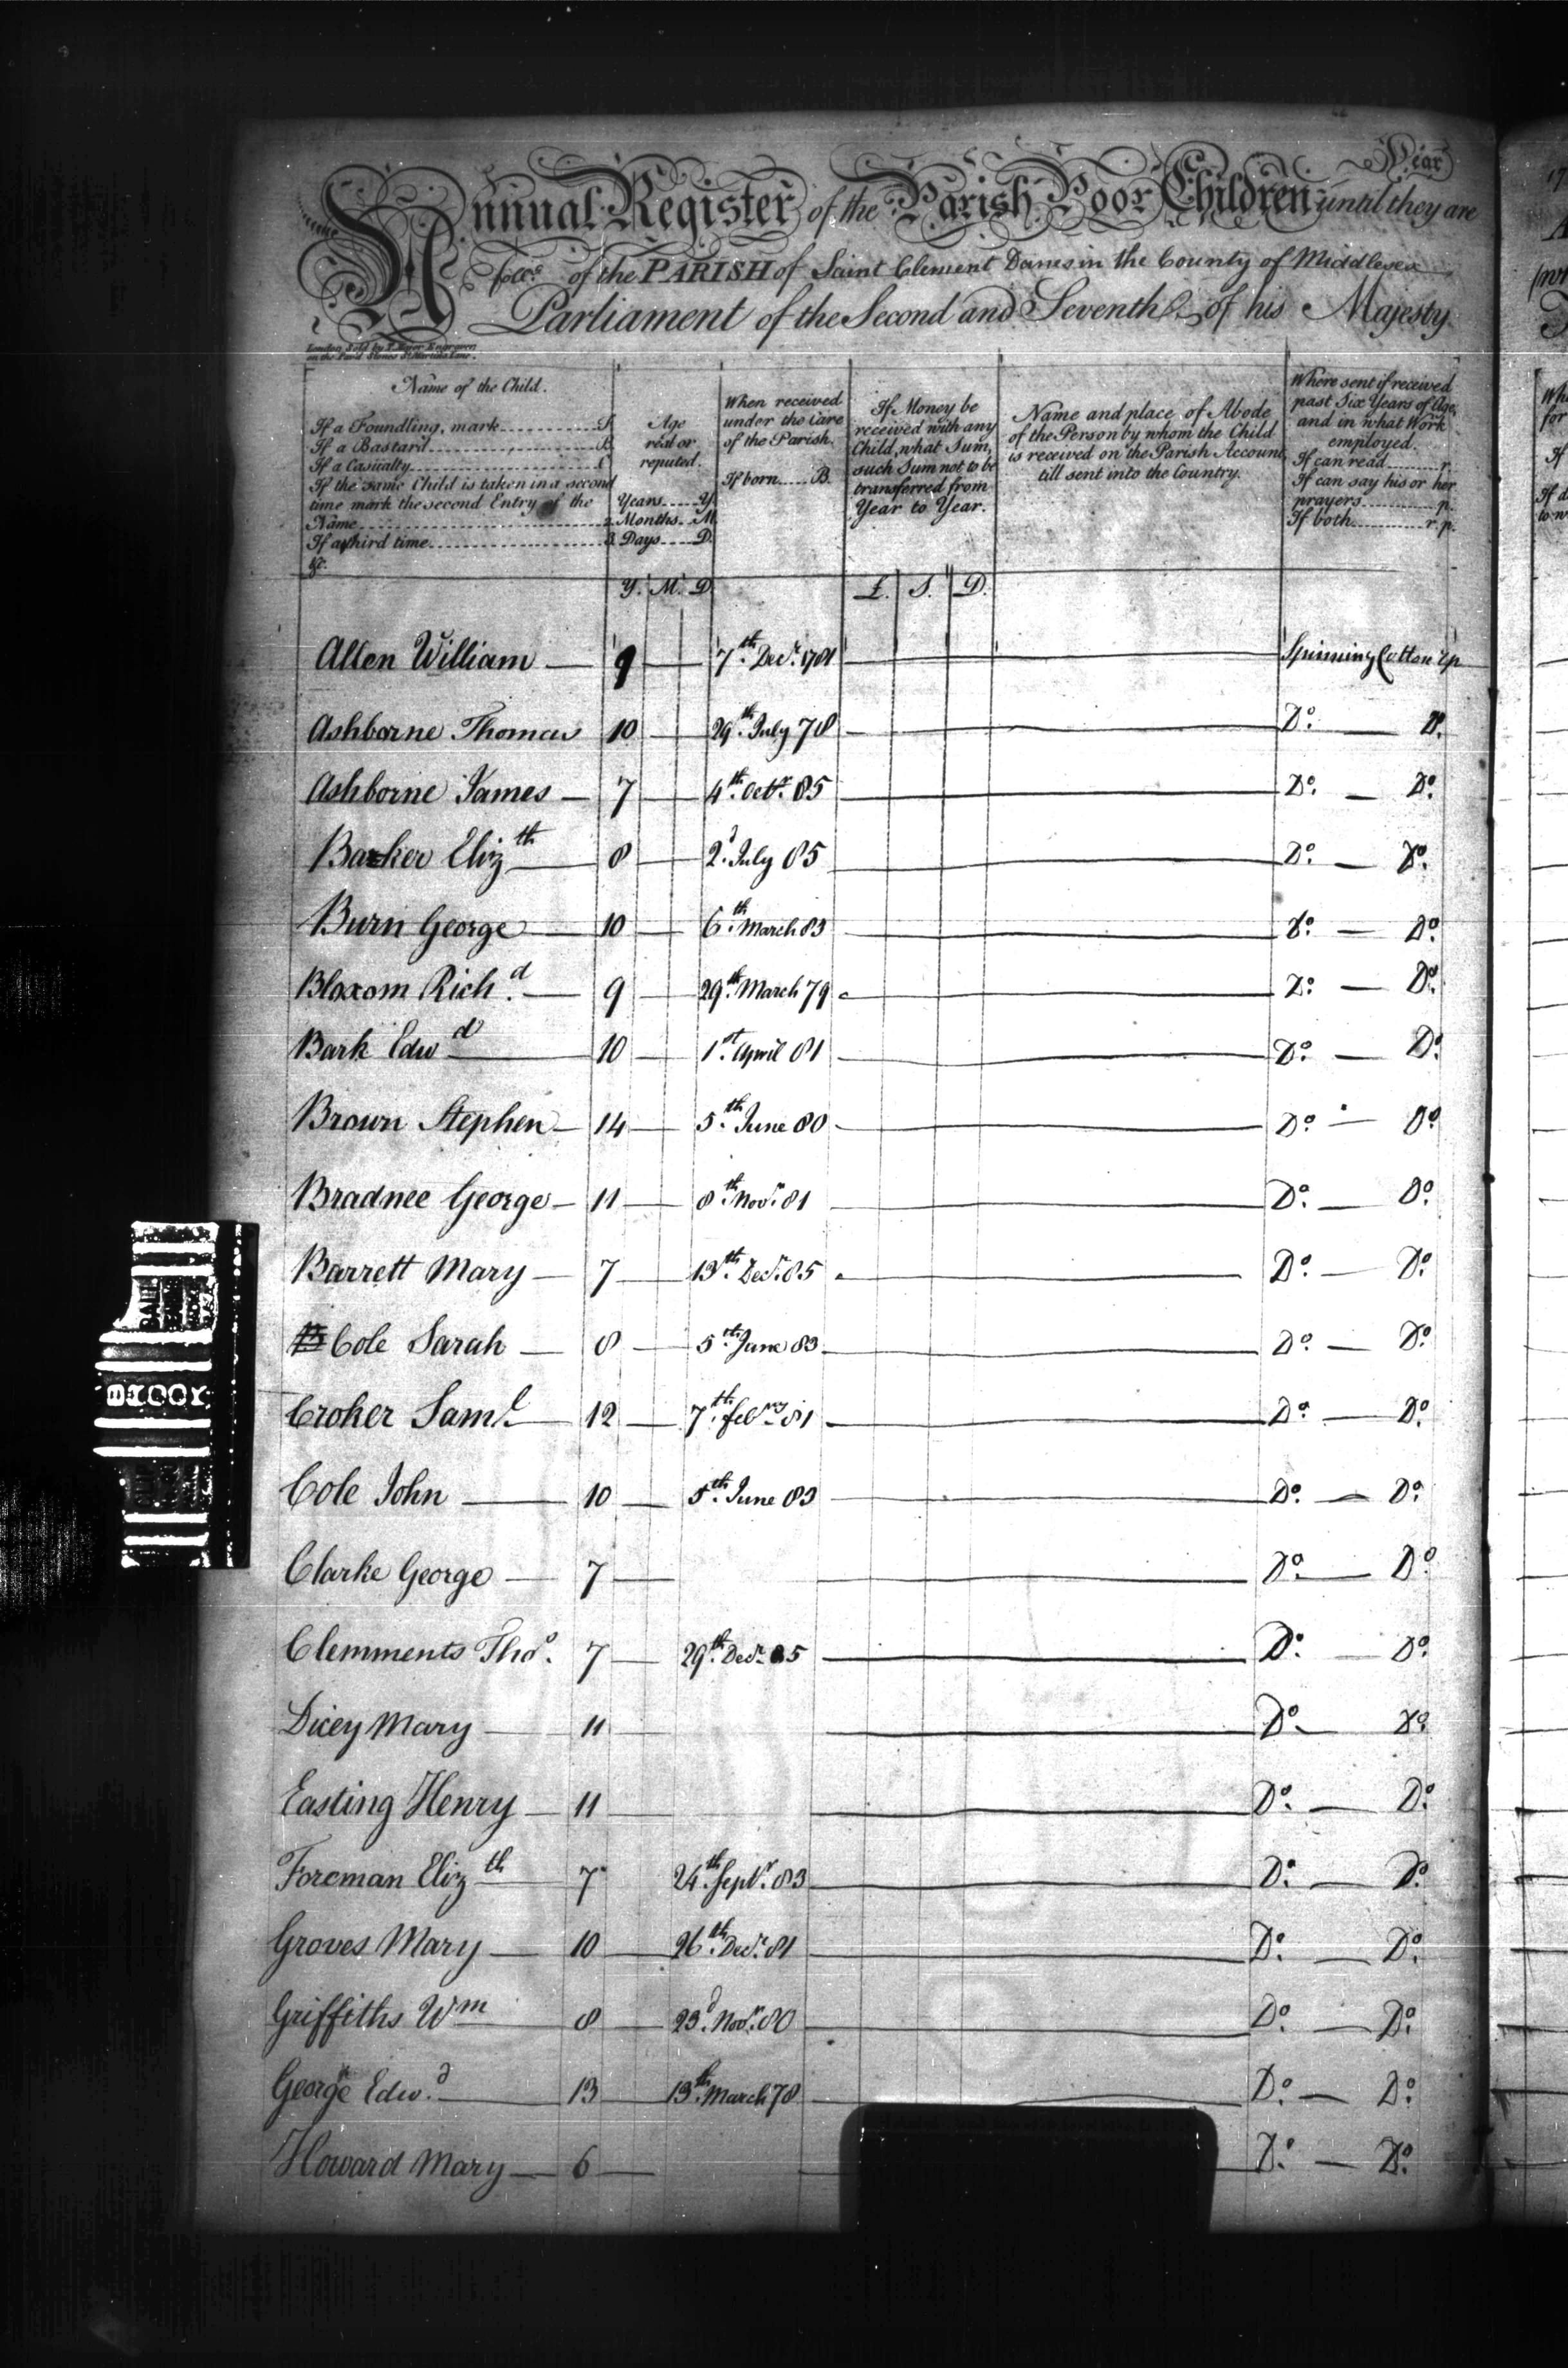 Year
Annual Register of the Parish Poor Children until they are
of the PARISH of Saint Clement Danes in the County of Middlesex
Parliament of the Second and Seventh of his Majesty
Name of the Child.
If a Foundling, mark F
If a Bastard B
If a Casualty C
If the same Child is taken in a second
time mark the second Entry of the
Name 2
If a third time 3
&c.
Age
real or
reputed.
Years Y.
Months M.
Days D.
When received
under the Care
of the Parish.
If born B.
If Money be
received with any
Child, what Sum,
such Sum not to be
transferred from
Year to Year.
Name and place of Abode
of the Person by whom the Child
is received on the Parish Account
till sent into the Country.
Where sent if received
past Six Years of Age,
and in what Work
employed.
If can read r.
If can say his or her
prayers p.
If both r.p.
Y. M. D. £. S. D.
Allen William 9 7th Decr 1781 Spinning Cotton rp
Ashborne Thomas 10 29th July 78 Do. Do.
Ashborne James 7 4th Octr 85 Do. Do.
Barker Elizth 8 2d July 85 Do. Do.
Burn George 10 6th March 83 Do. Do.
Bloxom Richd 9 29th March 79 Do. Do.
Bark Edwd 10 1st April 81 Do. Do.
Brown Stephen 14 5th June 80 Do. Do.
Bradnee George 11 8th Novr 81 Do. Do.
Barrett Mary 7 13th Decr 85 Do. Do.
Cole Sarah 8 5th June 83 Do. Do.
Croker Saml 12 7th febry 81 Do. Do.
Cole John 10 5th June 83 Do. Do.
Clarke George 7 Do. Do.
Clemments Thos. 7 29th Decr 85 Do. Do.
Dicey Mary 11 Do. Do.
Easting Henry 11 Do. Do.
Foreman Elizth 7 24th Septr 83 Do. Do.
Groves Mary 10 26th Decr 81 Do. Do.
Griffiths Wm 8 23d Novr 80 Do. Do.
George Edwd 13 13th March 78 Do. Do.
Howard Mary 6 Do. Do.